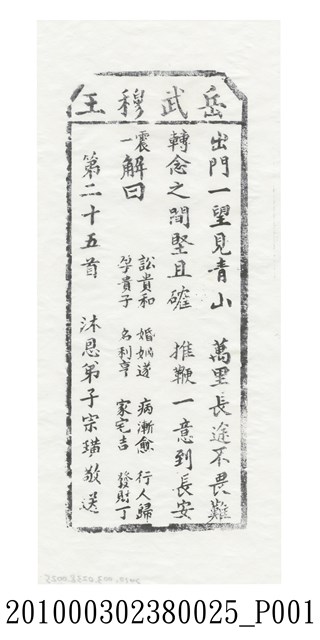 岳武穆王
出門一望見青山 萬里長途不畏難
轉念之間堅且確 推鞭一意到長安
震一 解曰 訟貴和 婚姻遂 病漸愈 行人歸
孕貴子 名利亨 家宅吉 發財丁
第二十五首 沐恩弟子宗璜敬送
201000302380025_P001